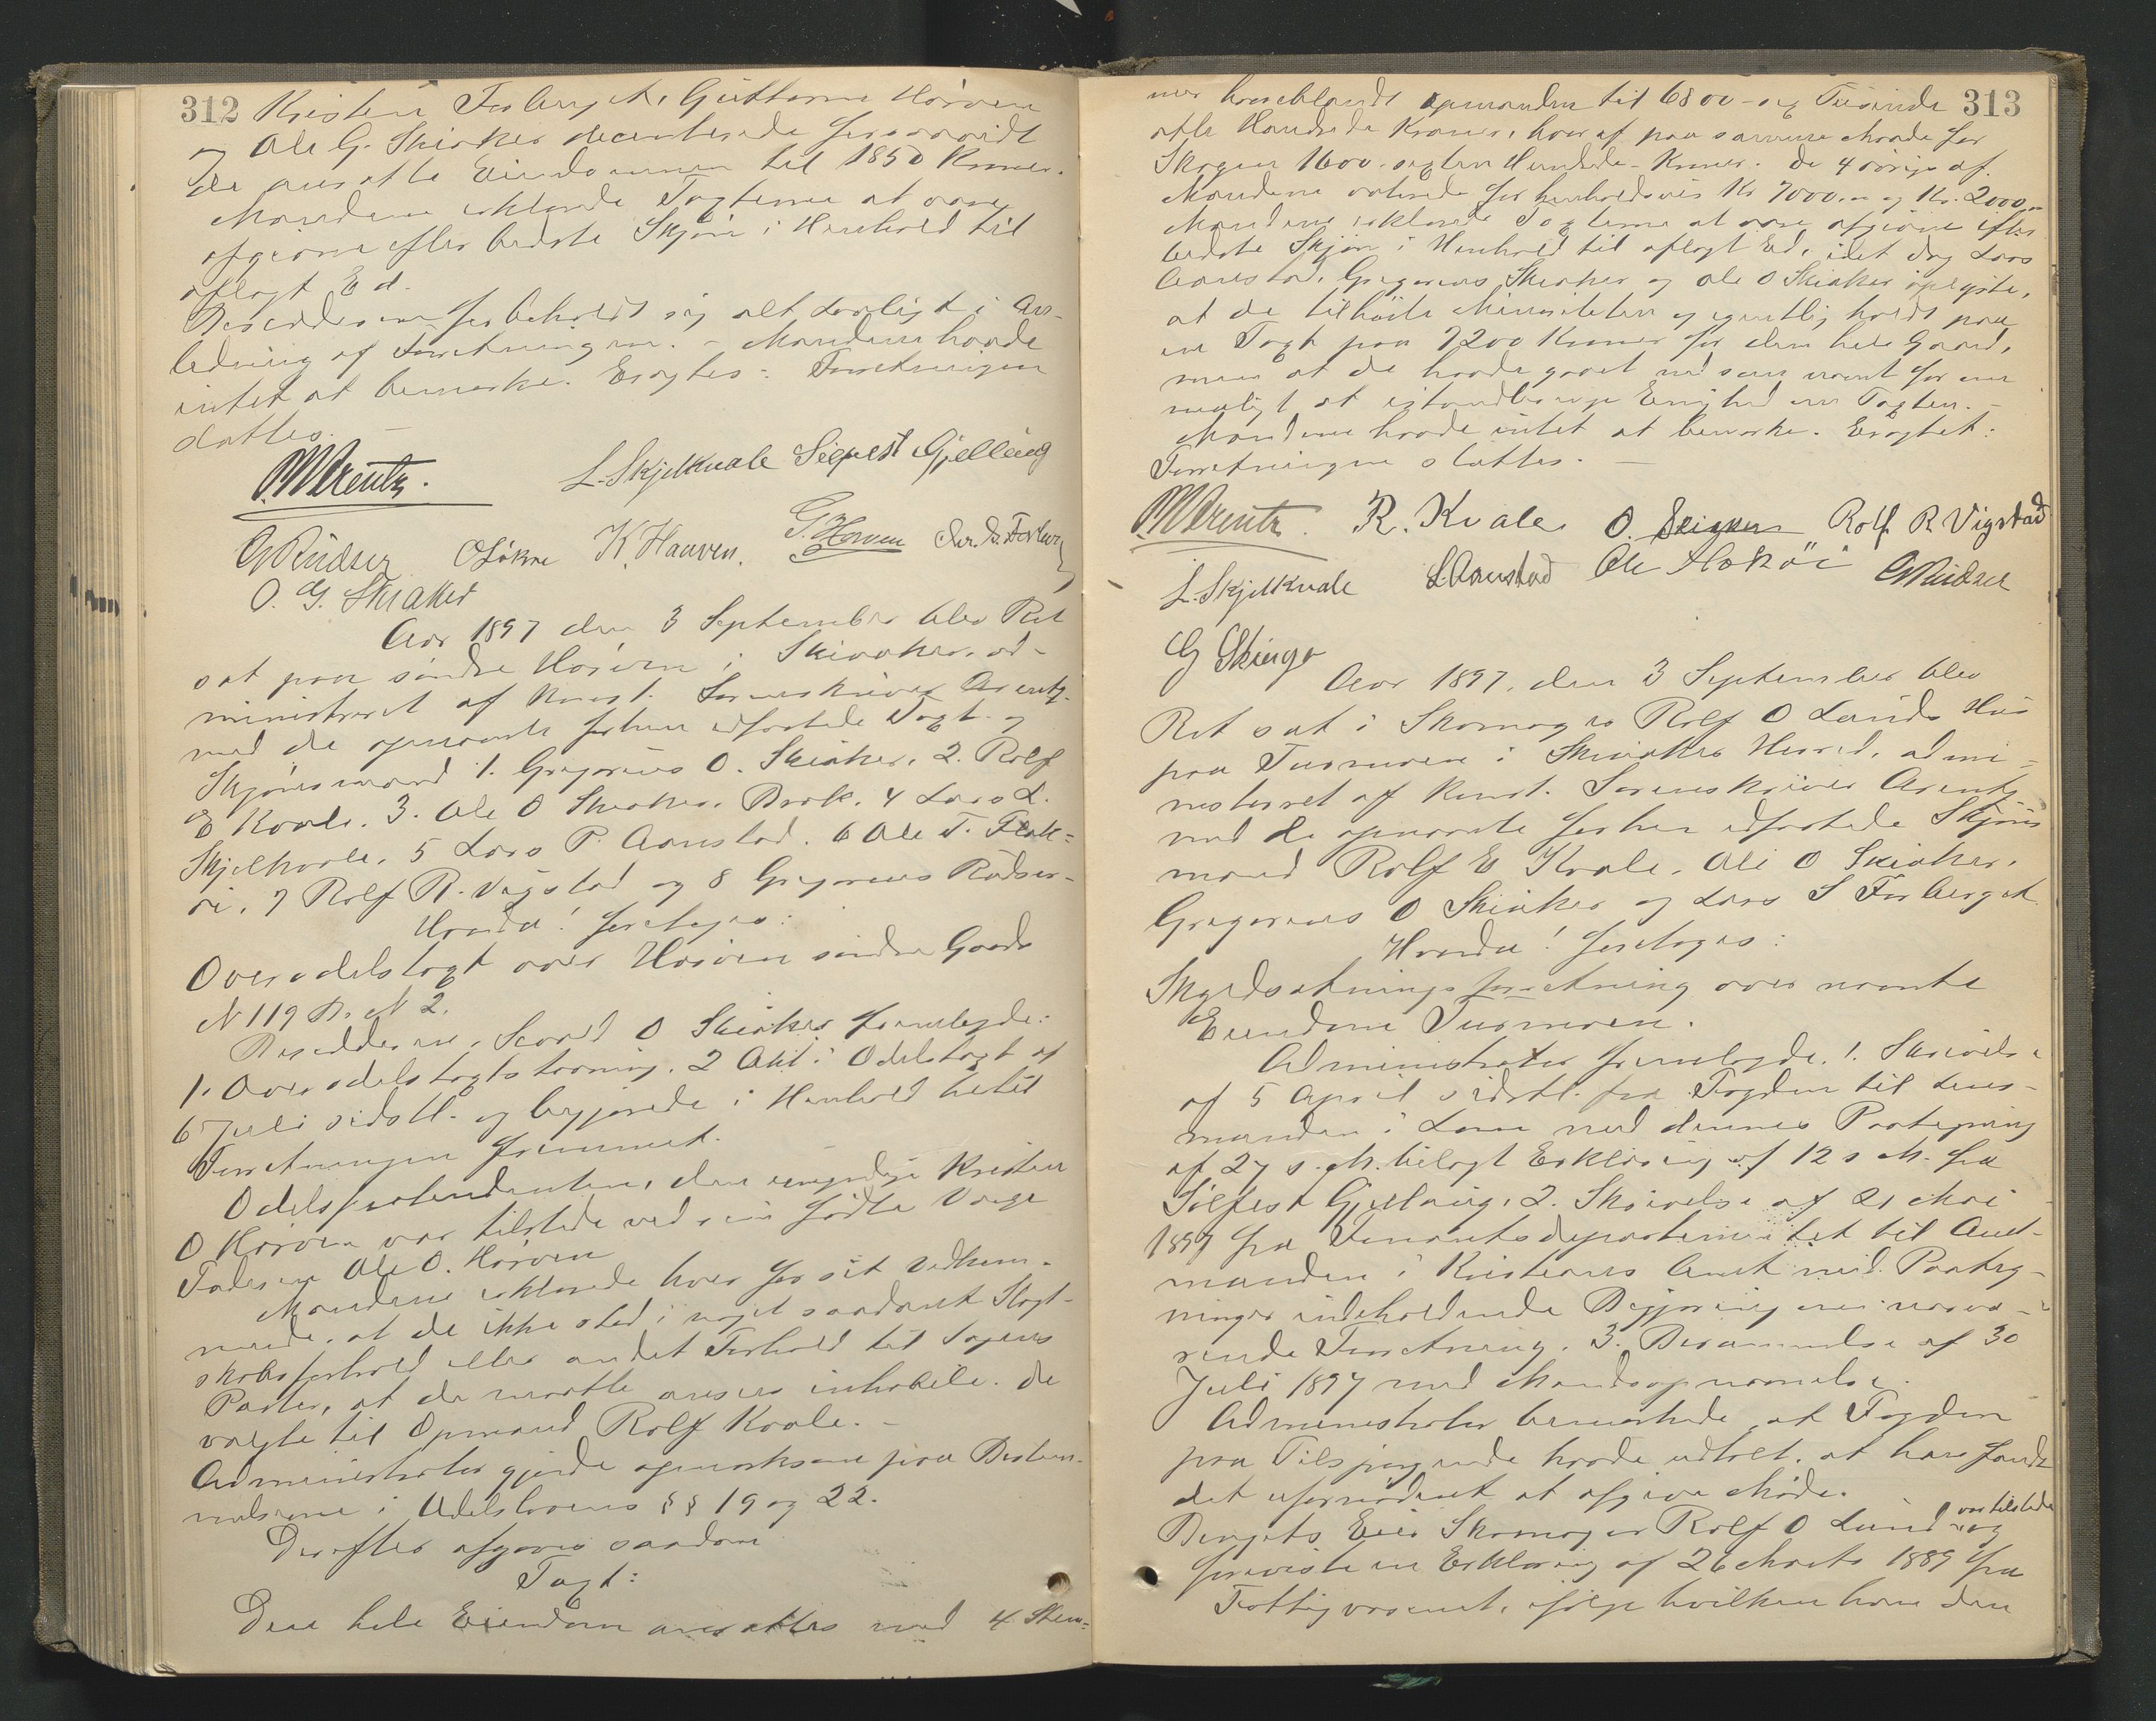 312
Kristen Forberget, Guttorm Hörven
og Ole G. Skiaker decenterede forsaavidt
de ansatte Eiendommen til 1850 Kroner.
Mændene erklærede Taxterne at være
afgivne efter bedste Skjøn i Henhold til
aflagt Ed.
Rekvirenten forbeholdt sig alt Lovligt i An-
ledning af Forretningen. - Mændene havde
intet at bemærke. Eragtes: Forretningen
sluttes. -
MArentz. L. Skjelkvale Siqvest Gjelling
G Rudser O Løkne K. Hauven. G. Hørven
O. G. Skiaker
Aar 1897 den 3 September blev Ret
sat paa søndre Hörven i Skiaker, ad-
ministreret af konst. Sorenskriver Arentz.
med de opnævnte forhen edfæstede Taxt- og
Skjønsmænd 1. Gregorius O. Skiaker, 2. Rolf
E Kvale. 3. Ole O Skiaker. Brok. 4 Lars L.
Skjelkvale, 5 Lars P. Aanstad. 6 Ole T. Flek-
øi, 7 Rolf R. Vigstad og 8 Gregorius Rudser-
Hvorda! foretoges:
Overodelstaxt over Hörven søndre Gaards
N 119 B. N 2.
O Skiaker fremlagde:
1. Overodelstaxtstævning. 2 Akt i Odelstaxt af
6 Juli sidstl. og begjærede i Henhold hertil
Forretningen fremmet.
Odelsprætendenten, den umyndige Kristen
O Hörven var tilstede ved sin fødte Værge
Faderen Ole O. Hörven
Mændene erklærede hver for sit Vedkom-
mende, at de ikke stod i noget saadant Slægt-
skabsforhold eller andet Forhold til Sagens
Parter, at de maatte ansees inhabile. De
valgte til Opmand Rolf Kvale. -
Administrator gjorde opmærksom paa Bestem-
melserne i Odelslovens §§ 19 og 22.
Derefter afgaves saadan
Taxt:
Den hele Eiendom ansættes med 4 Stem-
313
mer hvoriblandt Opmanden til 6800 - sex Tusinde
otte Hundrede Kroner, hvoraf paa samme Maade for
Skogen 1600 - sexten Hundrede - Kroner. De 4 øvrige af
Mændene voterede for henholdsvis Kr 7000,00 og Kr. 2000,00
Mændene erklærede Taxterne at være afgivne efter
bedste Skjøn i Henhold til aflagt Ed, idet dog Lars
Aanstad, Gregorius Skiaker og Ole O Skiaker oplyste,
at de tilhørte Minoriteten og egentlig holdt paa
en Taxt paa 7200 Kroner for den hele Gaard,
men at de havde gaaet ned som nævnt for om
muligt at istandbringe Enighed om Taxten. -
Mændene havde intet at bemærke. Eragtet:
Forretningen sluttes. -
MArentz. R. Kvale O. Skiaker Rolf R Vigstad
L. Skjelkvale L. Aanstad Ole Flekøi G Rudser
G Skiage
Aar 1897, den 3 September blev
Ret sat i Skomager Rolf O Lunds Hus
paa Turmoen i Skiaker Herred, admi-
nistreret af konst. Sorenskriver Arentz
med de opnævnte forhen edfæstede Skjøns
mænd Rolf E Kvale, Ole O Skiaker,
Gregorius O Skiaker og Lars S Forberget
Hvorda! foretoges:
Skyldsætningsforretning over nævnte
Eiendom Turmoen.
Administrator fremlagde. 1. Skrivelse
af 5 April sidstl. fra Fogden til Lens-
manden i Lom med dennes Paategning
af 27 s. M. bilagt Erklæring af 12 s M. fra
Sølfest Gjelling, 2. Skrivelse af 21 Mai
1897 fra Finantsdepartementet til Amt-
manden i Kristians Amt med Paateg-
ninger indeholdende Begjæring om nærvæ-
rende Forretning. 3. Berammelse af 30
Juli 1897 med Mandsopnævnelse.
Administrator bemærkede, at Fogden
paa Tilspørgende havde udtalt, at han fandt
det ufornødent at afgive Møde.
Brugets Eier Skomager Rolf O Lund var tilstede og
foreviste en Erklæring af 26 Marts 1889 fra
Fattigvæsenet, ifølge hvilken han den